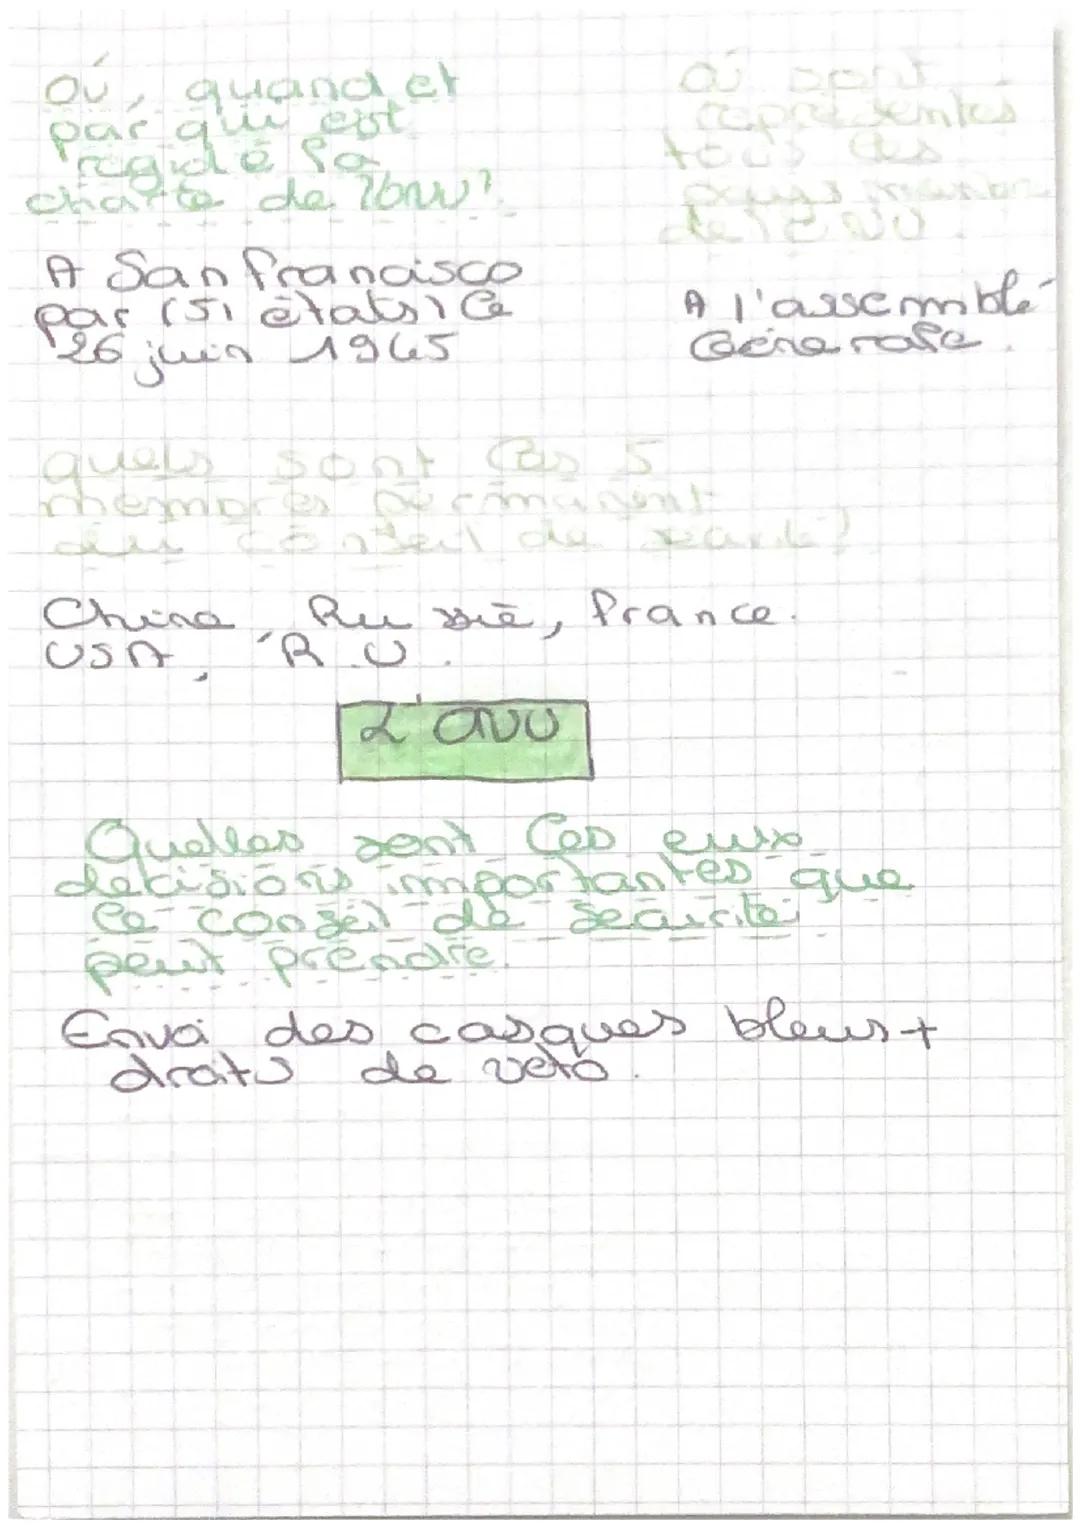 Où, quand et
par qui est
régidé la
charte de l'ONU?
A San francisco
par (51 états) le
26 juin 1945
Où sont
représentés
tous les
pays membre
de l'ONU.
A l'assemblé
Génerale.
quels sont les 5
membres permanent
du conseil de sécurité?
Chine, Russie, france.
USA, R.U.
L'ONU
Quelles sont les eux
décisions importantes que
le conseil de sécurité
peut prendre.
Envoi des casques bleus +
droits de véto.